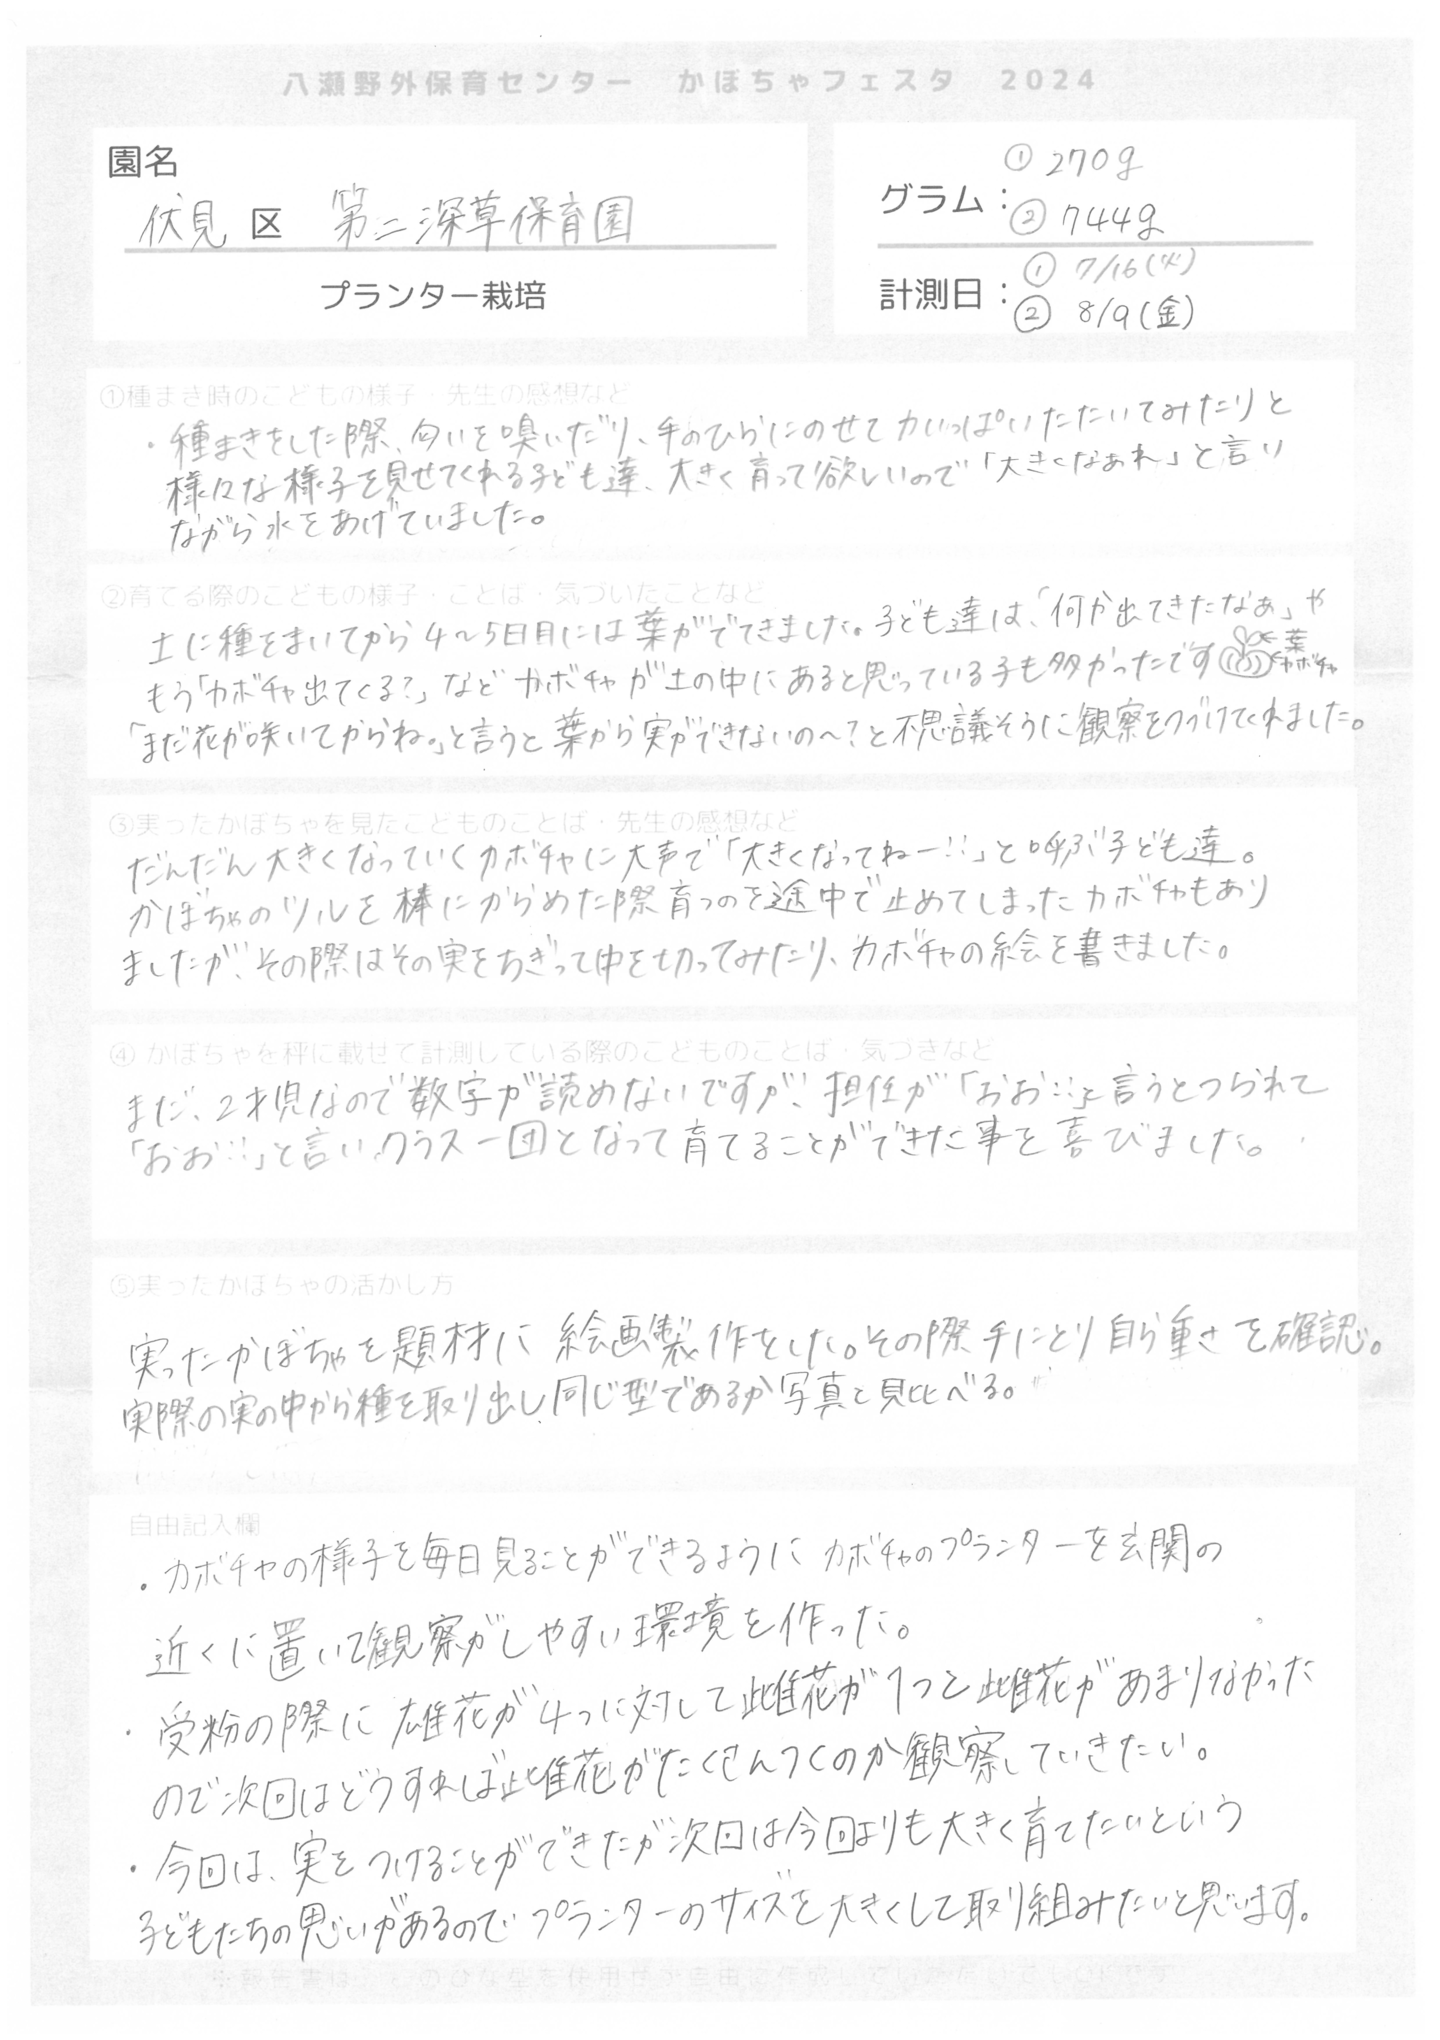 八瀬野外保育センター　かぼちゃフェスタ　2024
園名
伏見 区 第二深草保育園
プランター栽培
グラム：① 270g
② 744g
計測日：① 7/16(火)
② 8/9(金)
①種まき時のこどもの様子・先生の感想など
・種まきをした際、匂いを嗅いだり、手のひらにのせて力いっぱいたたいてみたりと
様々な様子を見せてくれる子ども達、大きく育って欲しいので「大きくなぁれ」と言い
ながら水をあげていました。
②育てる際のこどもの様子・ことば・気づいたことなど
土に種をまいてから4〜5日目には葉がでてきました。子ども達は、「何か出てきたなぁ」や
もう「カボチャ出てくる？」などカボチャが土の中にあると思っている子も多かったです
葉
カボチャ
「まだ花が咲いてからね。」と言うと葉から実ができないの〜？と不思議そうに観察をつづけてくれました。
③実ったかぼちゃを見たこどものことば・先生の感想など
だんだん大きくなっていくカボチャに大声で「大きくなってねー!!」と呼ぶ子ども達。
かぼちゃのツルを棒にからめた際育つのを途中で止めてしまったカボチャもあり
ましたが、その際はその実をちぎって中を切ってみたり、カボチャの絵を書きました。
④ かぼちゃを秤に載せて計測している際のこどものことば・気づきなど
まだ、2才児なので数字が読めないですが、担任が「おお!!」と言うとつられて
「おお!!」と言い、クラス一団となって育てることができた事を喜びました。
⑤実ったかぼちゃの活かし方
実ったかぼちゃを題材に絵画製作をした。その際手にとり自ら重さを確認。
実際の実の中から種を取り出し同じ型であるか写真と見比べる。
自由記入欄
・カボチャの様子を毎日見ることができるようにカボチャのプランターを玄関の
近くに置いて観察がしやすい環境を作った。
・受粉の際に雄花が4つに対して雌花が1つと雌花があまりなかった
ので次回はどうすれば雌花がたくさんつくのか観察していきたい。
・今回は、実をつけることができたが次回は今回よりも大きく育てたいという
子どもたちの思いがあるのでプランターのサイズを大きくして取り組みたいと思います。